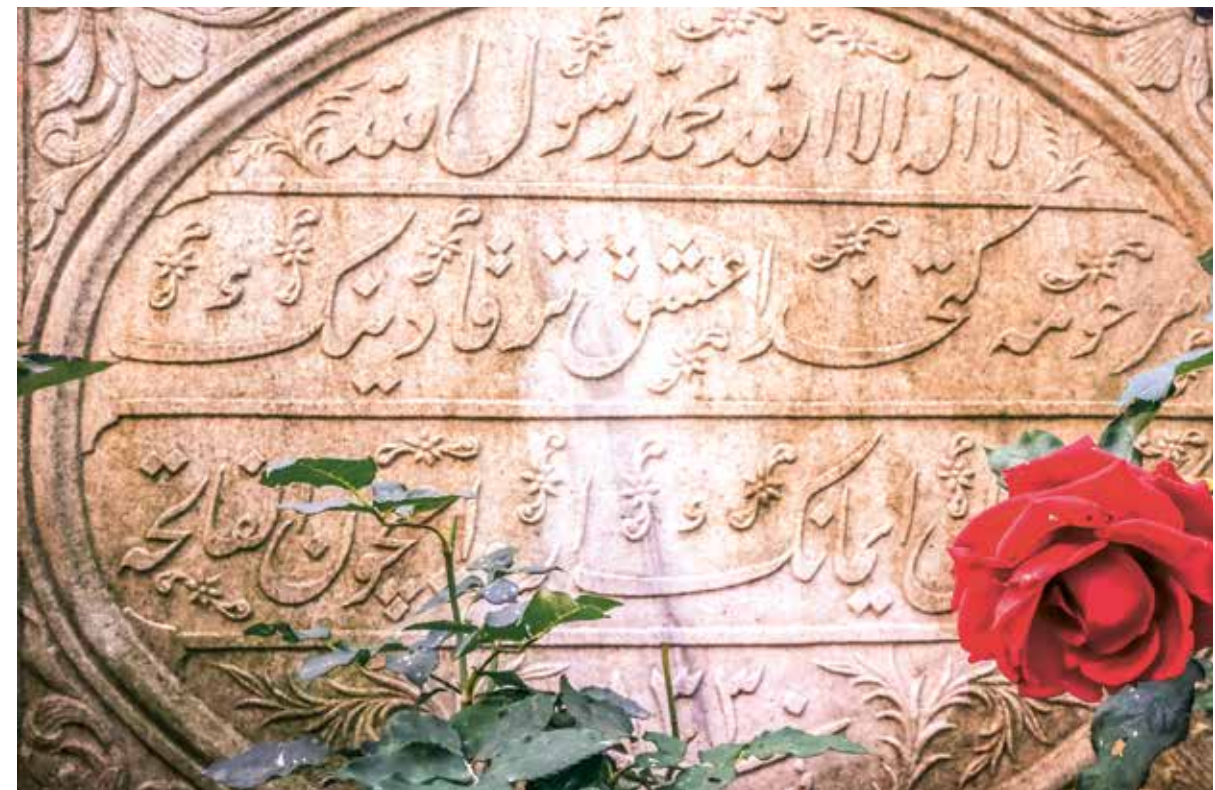 لا اله الا الله محمد رسول الله
مرحومه كتخدا عشق تر قادينك
ايمانك ايچون الفاتحه
١٣٣٠